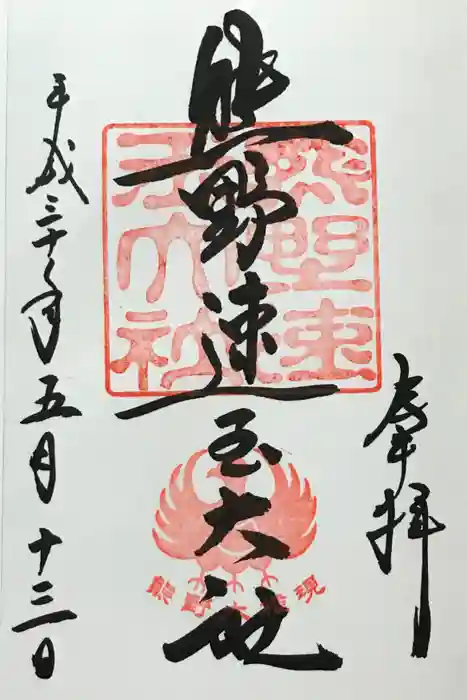 奉拝
熊野速玉大社
平成三十年五月十三日
熊野速玉大社
熊野大権現